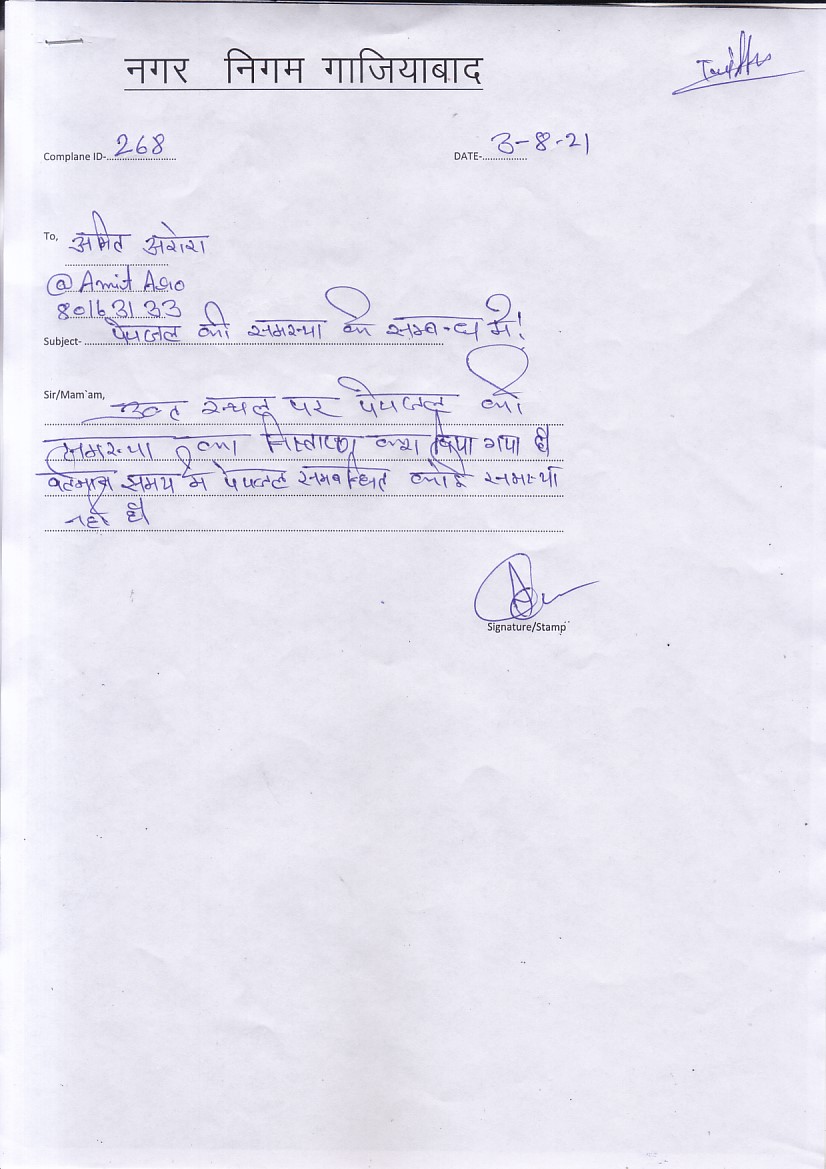 नगर निगम गाजियाबाद
Complane ID- 268
DATE- 3-8-21
To, अमित अरोरा
@Amit Aro
80163133
Subject- पेयजल की समस्या के सम्बन्ध में!
Sir/Mam`am,
उक्त स्थल पर पेयजल की
समस्या का निस्तारण करा दिया गया है
वर्तमान समय में पेयजल सम्बन्धित कोई समस्या
नही है
Signature/Stamp